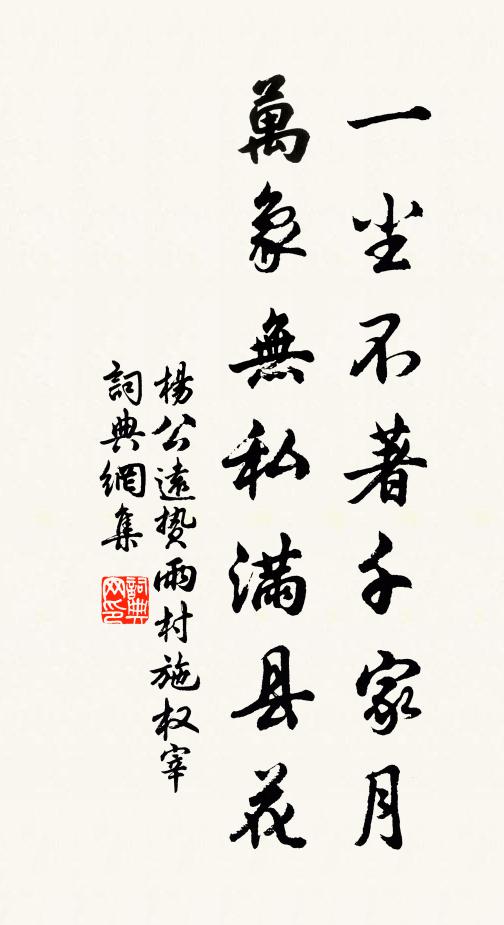 一尘不著千家月
萬象無私满县花
楊公遠贽雨村施权宰
詞典網集
詞典
网印